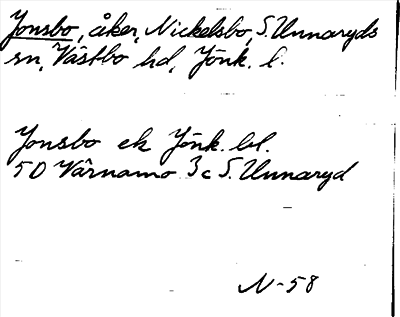 Jonsbo, åker, Nickelsbo, S. Unnaryds
sn, Västbo hd, Jönk. l.
Jonsbo ek Jönk. bl.
5D Värnamo 3c S. Unnaryd
N-58